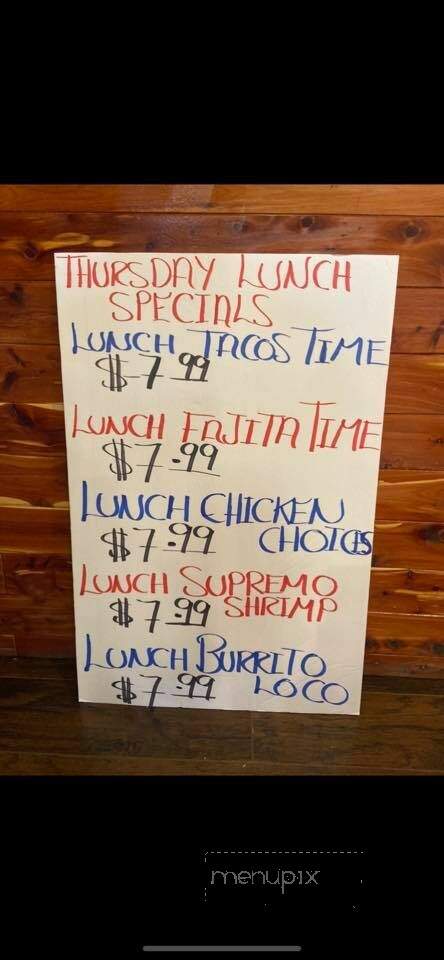 THURSDAY LUNCH
SPECIALS
LUNCH TACOS TIME
$7.99
LUNCH FAJITA TIME
$7.99
LUNCH CHICKEN
$7.99 CHOICES
LUNCH SUPREMO
$7.99 SHRIMP
LUNCH BURRITO
$7.99 LOCO
menupix